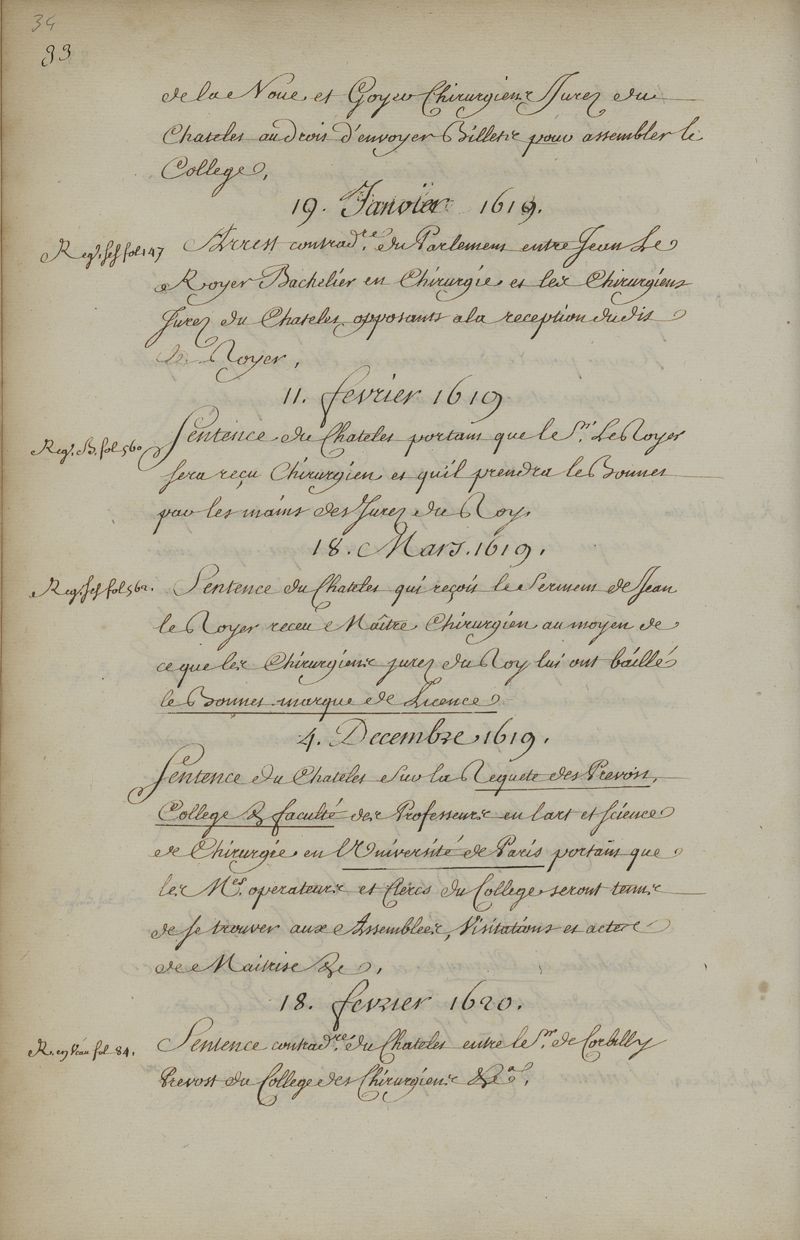 34
33
de la Noue et Goyer Chirurgiens Jurez du
Chatelet au droit d'envoyer Billets pour assembler le
College,
19. Janvier 1619.
Arrest contrad.re du Parlement entre Jean Le
Reg. fol 147
Royer Bachelier en Chirurgie et les Chirurgiens
Jurez du Chatelet opposants a la reception dudit
le Royer,
11. fevrier 1619
Sentence du Chatelet portant que le S.r Le Royer
Reg. B. fol 560
sera reçu Chirurgien et qu'il prendra le Bonnet
par les mains des Jurez du Roy.
18. Mars. 1619.
Reg. fol 562. Sentence du Chatelet qui reçoit le Serment de Jean
le Royer receu Maître Chirurgien au moyen de
ce que les Chirurgiens jurez du Roy lui ont baillé
le Bonnet marque de Licence
4. Decembre 1619.
Sentence du Chatelet Sur la Requete des Prevost,
College & faculté des Professeurs en l'art et science
de Chirurgie en l'Université de Paris portant que
les M.es operateurs et Clercs du College seront tenus
de se trouver aux Assemblées, Visitations et actes
de Maitrise &c,
18. fevrier 1620.
Sentence contrad.re du Chatelet entre le S.r de Corbilly
R. fol 84.
Prevost du College des Chirurgiens &a,